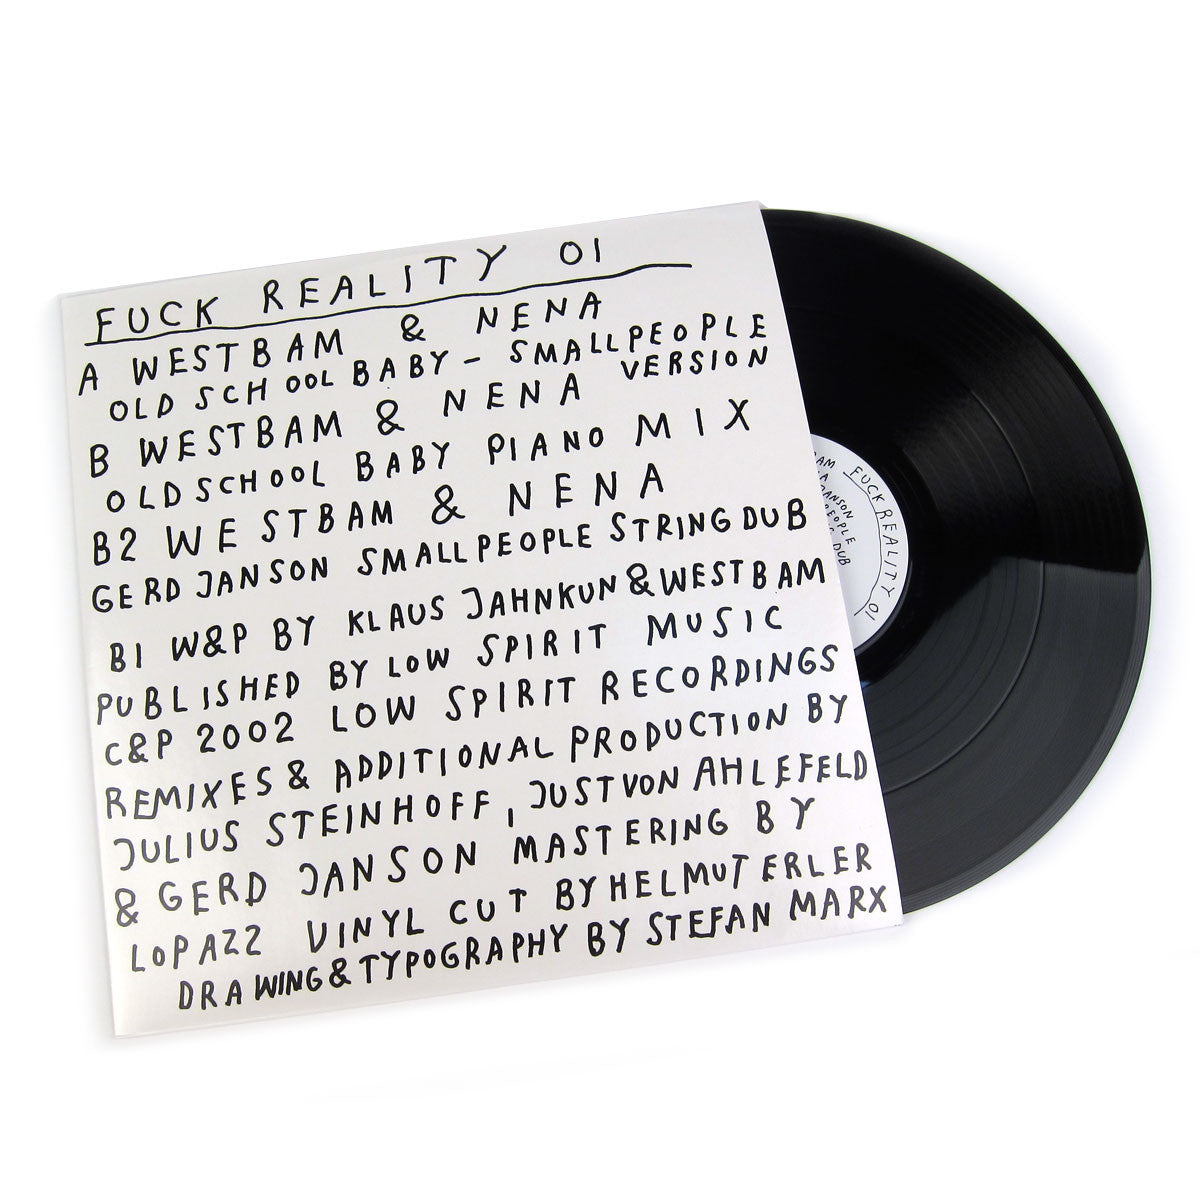 FUCK REALITY 01
A WESTBAM & NENA
OLD SCHOOL BABY - SMALLPEOPLE
VERSION
B WESTBAM & NENA
OLDSCHOOL BABY PIANO MIX
B2 WESTBAM & NENA
GERD JANSON SMALLPEOPLE STRING DUB
B1 W&P BY KLAUS JAHNKUN & WESTBAM
PUBLISHED BY LOW SPIRIT MUSIC
C&P 2002 LOW SPIRIT RECORDINGS
REMIXES & ADDITIONAL PRODUCTION BY
JULIUS STEINHOFF, JUST VON AHLEFELD
& GERD JANSON MASTERING BY
LOPAZZ VINYL CUT BY HELMUT ERLER
DRAWING & TYPOGRAPHY BY STEFAN MARX
FUCK REALITY 01
DUB